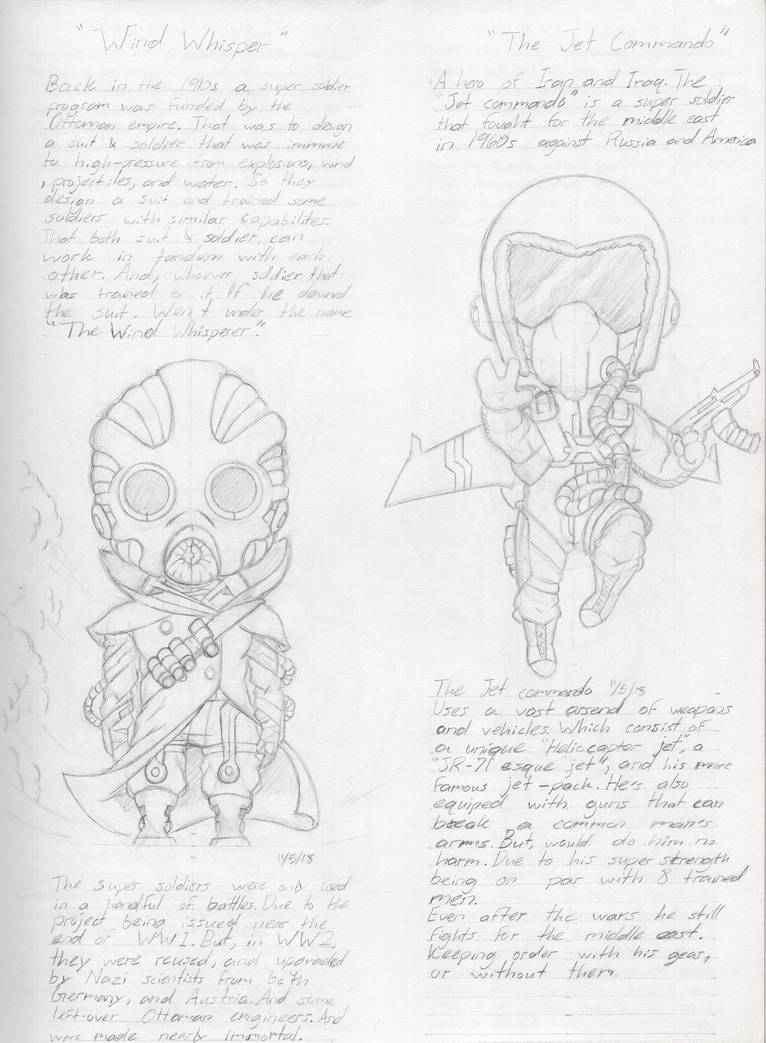 "Wind Whisper"
Back in the 1910s a super soldier
program was funded by the
Ottoman empire. That was to design
a suit & soldier that was immune
to high-pressure from explosions, wind
, projectiles, and water. So they
design a suit and trained some
soldiers with similar capabilites.
That both suit & soldier, can
work in tandum with each
other. And, whoever, soldier that
was trained for it. If he dawned
the suit. Went under the name
"The Wind Whisperer."
11/5/18
The super soldiers were only used
in a handful of battles. Due to the
project being issued near the
end of WW1. But, in WW2,
they were reused, and upgraded
by Nazi scientists from both
Germany, and Austria. And some
left-over Ottoman engineers. And
were made nearly immortal.
"The Jet Commando"
A hero of Iran and Iraq. The
"Jet commando" is a super soldier
that fought for the middle east
in 1960s against Russia and America
The Jet commando 11/5/18
Uses a vast arsenal of weapons
and vehicles. Which consist of
a unique "Helicopter jet", a
"JR-71 esque jet", and his more
famous jet-pack. He's also
equiped with guns that can
break a common man's
arms. But, would do him no
harm. Due to his super strength
being on par with 8 trained
men.
Even after the wars he still
fights for the middle east.
Keeping order with his gear,
or without them.